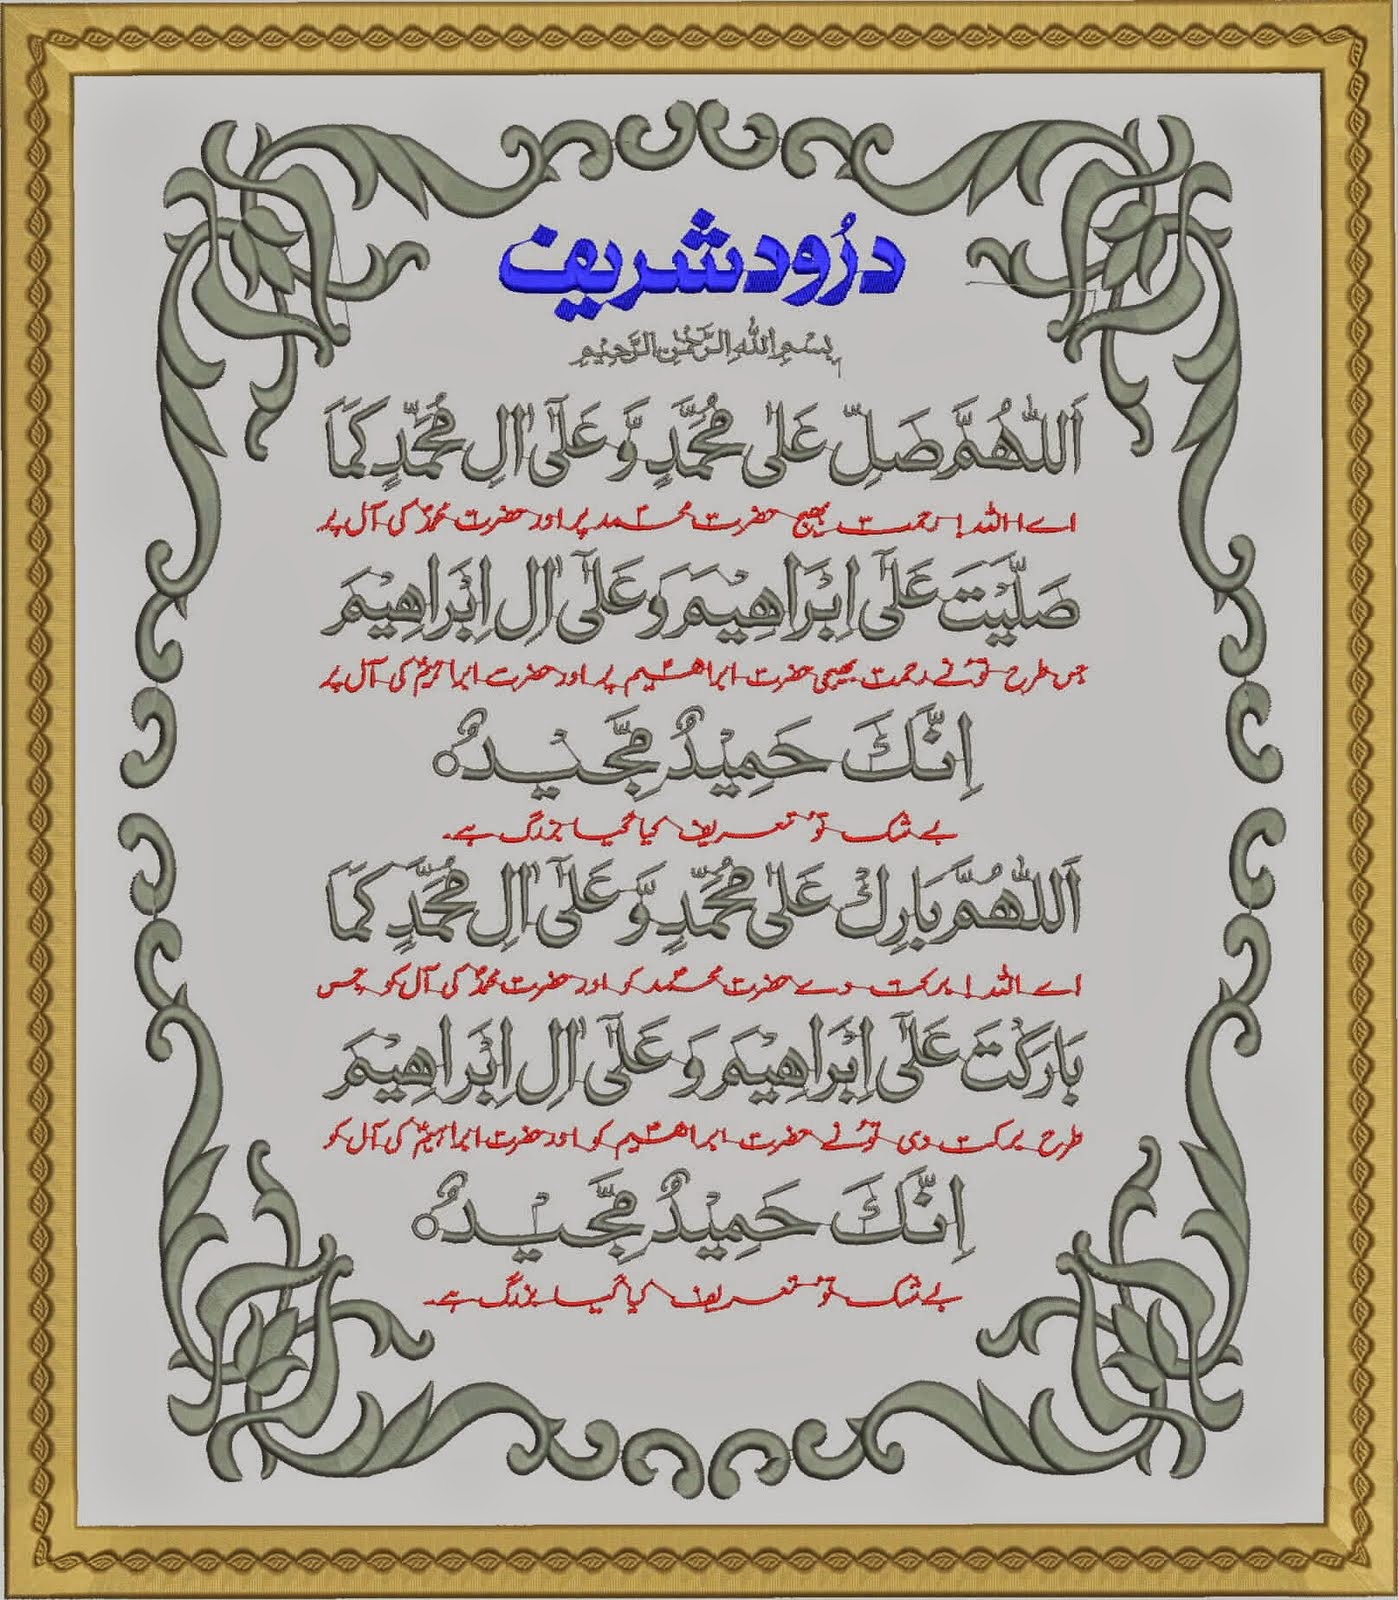 درُود شریف
بِسْمِ اللهِ الرَّحْمٰنِ الرَّحِيْمِ
اَللّٰهُمَّ صَلِّ عَلٰى مُحَمَّدٍ وَّ عَلٰٓى اٰلِ مُحَمَّدٍ كَمَا
اے اللہ! رحمت بھیج حضرت محمدؐ پر اور حضرت محمدؐ کی آل پر
صَلَّيْتَ عَلٰٓى اِبْرَاهِيْمَ وَ عَلٰٓى اٰلِ اِبْرَاهِيْمَ
جس طرح تُو نے رحمت بھیجی حضرت ابراہیمؑ پر اور حضرت ابراہیمؑ کی آل پر
اِنَّكَ حَمِيْدٌ مَّجِيْدٌ ہ
بے شک تُو تعریف کیا گیا بزرگ ہے۔
اَللّٰهُمَّ بَارِكْ عَلٰى مُحَمَّدٍ وَّ عَلٰٓى اٰلِ مُحَمَّدٍ كَمَا
اے اللہ! برکت دے حضرت محمدؐ کو اور حضرت محمدؐ کی آل کو جس
بَارَكْتَ عَلٰٓى اِبْرَاهِيْمَ وَ عَلٰٓى اٰلِ اِبْرَاهِيْمَ
طرح برکت دی تُو نے حضرت ابراہیمؑ کو اور حضرت ابراہیمؑ کی آل کو
اِنَّكَ حَمِيْدٌ مَّجِيْدٌ ہ
بے شک تُو تعریف کیا گیا بزرگ ہے۔